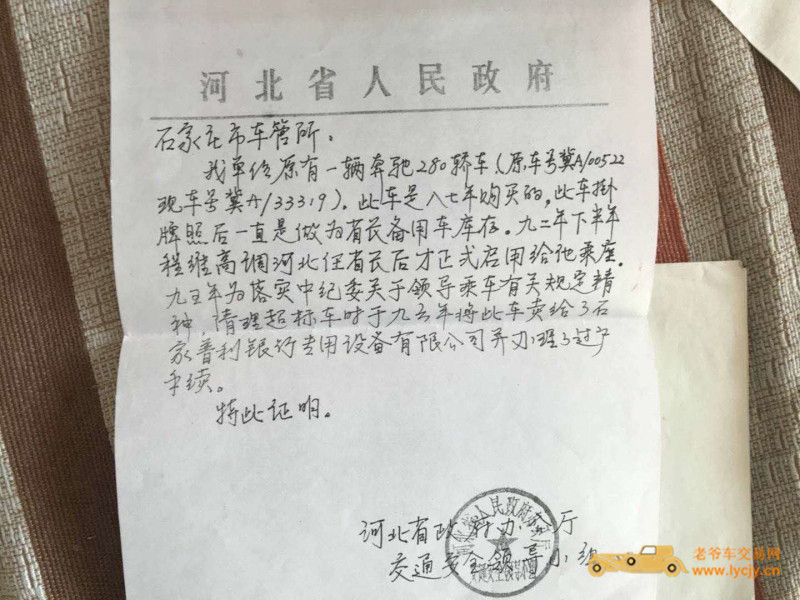 河北省人民政府
石家庄市车管所.
我单位原有一辆奔驰280轿车(原车号冀A/00522
现车号冀A/33319).此车是八七年购买的,此车掛
牌照后一直是做为省长备用车库存.九二年下半年
程维高调河北任省长后才正式启用给他乘座.
九五年为落实中纪委关于领导乘车有关规定精
神,清理超标车时于九六年将此车卖给了石
家普利银行专用设备有限公司并办理了过户
手续。
特此证明。
河北省政府办公厅
交通安全领导小组
老爷车交易网
www.lycjy.cn